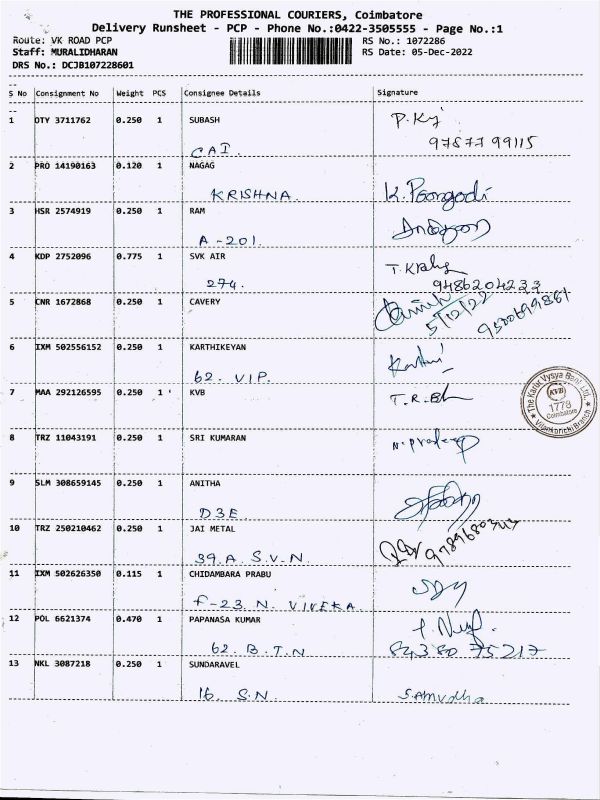 THE PROFESSIONAL COURIERS, Coimbatore
Delivery Runsheet - PCP - Phone No.:0422-3505555 - Page No.:1
Route: VK ROAD PCP RS No.: 1072286
Staff: MURALIDHARAN RS Date: 05-Dec-2022
DRS No.: DCJB107228601
S No Consignment No Weight PCS Consignee Details Signature
1 OTY 3711762 0.250 1 SUBASH
CAI. 97877 99115
2 PRO 14190163 0.120 1 NAGAG
KRISHNA. K. Poongodi
3 HSR 2574919 0.250 1 RAM
A-201.
4 KDP 2752096 0.775 1 SVK AIR
274. 9486204233
5 CNR 1672868 0.250 1 CAVERY
5/12/22
6 IXM 502556152 0.250 1 KARTHIKEYAN
62. VIP.
7 MAA 292126595 0.250 1 KVB
The Karur Vysya Bank Ltd.,
KVB
1778
Coimbatore
Vilankurichi Branch
8 TRZ 11043191 0.250 1 SRI KUMARAN N. Pradeep
9 SLM 308659145 0.250 1 ANITHA
D3E
10 TRZ 250210462 0.250 1 JAI METAL
39.A. S.V.N
11 IXM 502626350 0.115 1 CHIDAMBARA PRABU
F-23. N. VIVEKA.
12 POL 6621374 0.470 1 PAPANASA KUMAR
62. B. T.N 84380 75217
13 NKL 3087218 0.250 1 SUNDARAVEL
16. S.N. S.Amudha